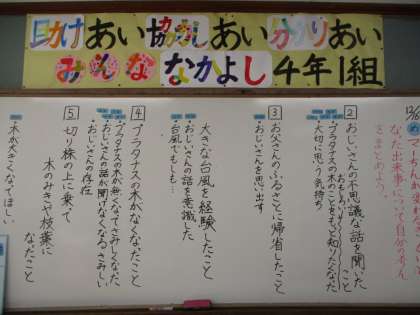 助けあい協力しあい分かりあい
みんななかよし4年1組
12/6
なった出来事について自分の考え
をまとめよう。
2 おじいさんの不思議な話を聞いたこと
・プラタナスの木のことをもっと知りたくなった
・大切に思う気持ち
3 お父さんのふるさとに帰省したこと
・おじいさんを思い出す
大きな台風を経験したこと
・おじいさんの話を意識した
・台風でもしも…
4 プラタナスの木がなくなったこと
・プラタナスの木が無くなってさみしくなった
・おじいさんの話が聞けなくなるさみしい
・おじいさんの存在
5 切り株の上に乗って
木のみきや枝葉になったこと
・木が大きくなってほしい